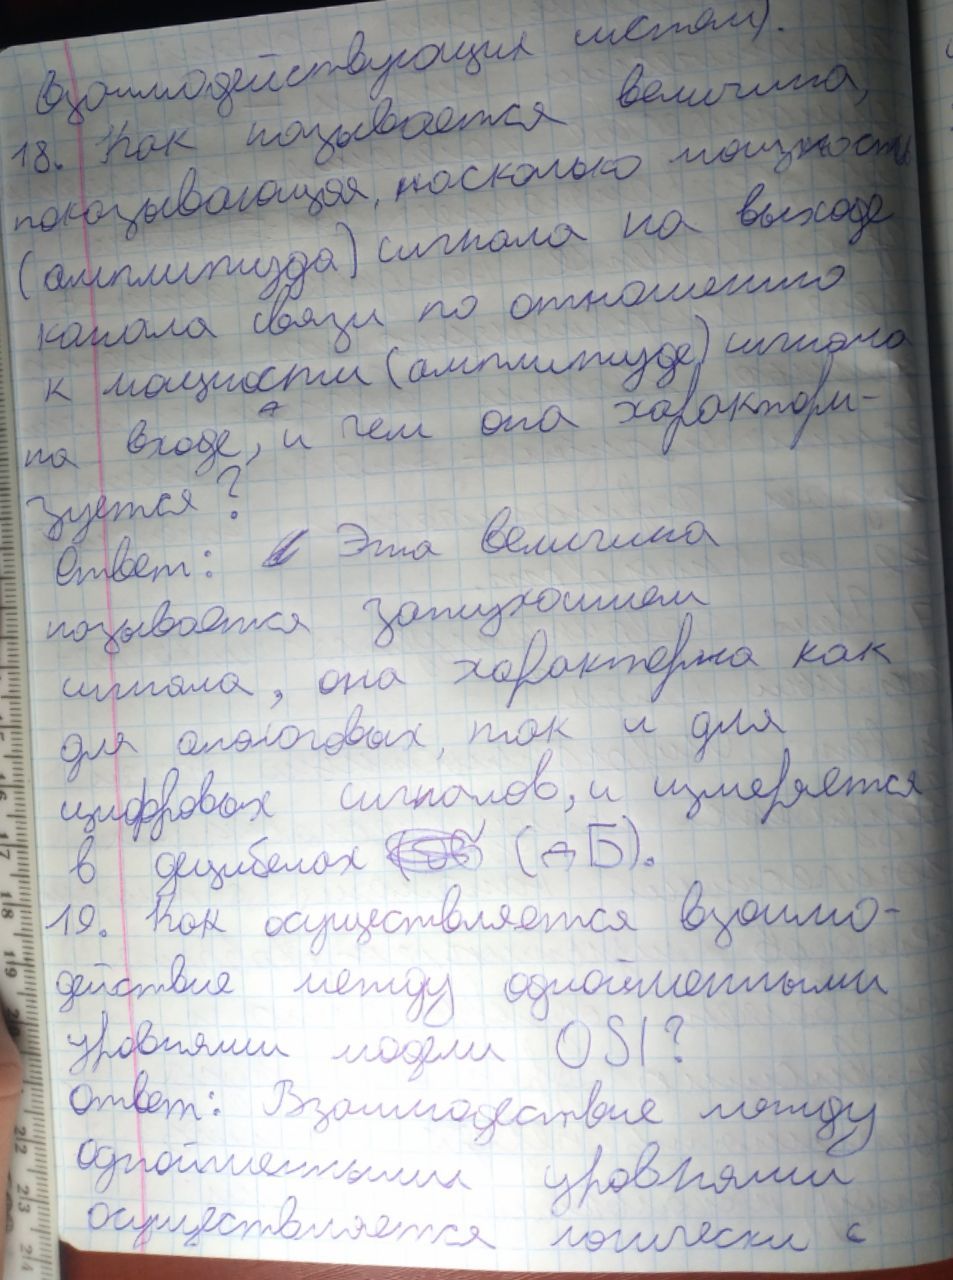 взаимодействующих систем).
18. Как называется величина,
показывающая, насколько мощность
(амплитуда) сигнала на выходе
канала связи по отношению
к мощности (амплитуде) сигнала
на входе, и чем она характери-
зуется?
Ответ: Эта величина
называется затуханием
сигнала, она характерна как
для аналоговых, так и для
цифровых сигналов, и измеряется
в децибелах (дБ).
19. Как осуществляется взаимо-
действие между одноимёнными
уровнями модели OSI?
Ответ: Взаимодествие между
одноимёнными уровнями
осуществляется логически с
15
16
17
18
19
20
22
23
24